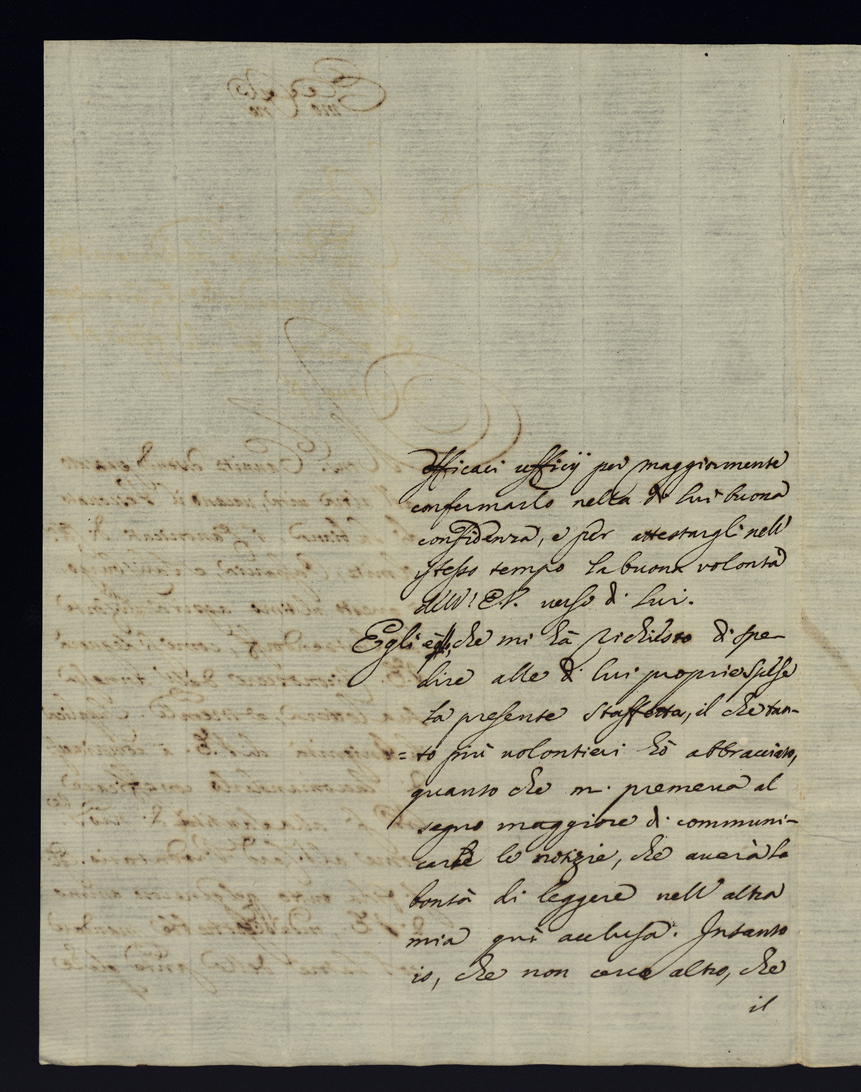 efficaci ufficij per maggiormente
confermarlo nella di lui buona
confidenza, e per attestargli nell'
stesso tempo la buona volontà
dell'E.V. verso di lui.
Egli è, che mi hà richiesto di spe-
dire alle di lui proprie spese
la presente staffetta, il che tan-
= to più volontieri hò abbracciato,
quanto che mi premeva al
segno maggiore di communi-
carle le notizie, che averà la
bontà di leggere nell'altra
mia quì acclusa. Intanto
io, che non cerco altro, che
il